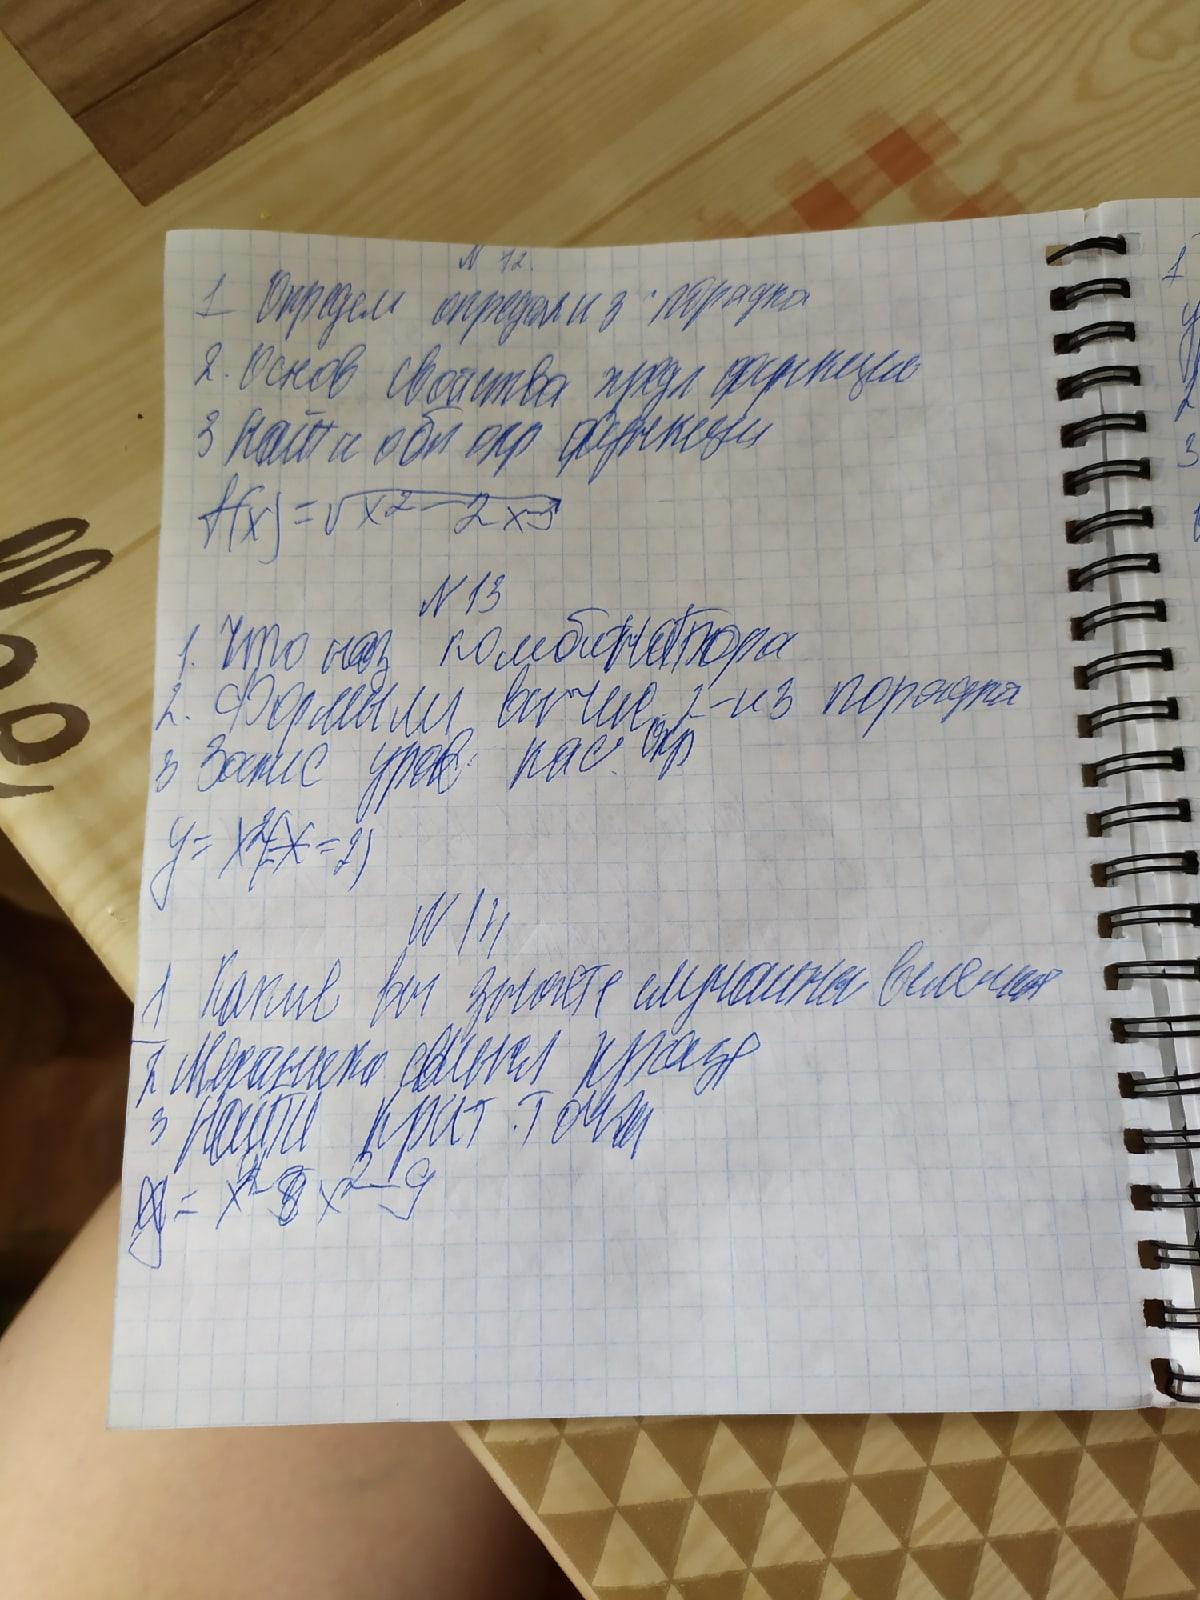 N 12.
1 Опредем определ из порядка
2. Основ свойства пред функции
3 Найти обл опр функции
f(x)=√x2-2x-3
N 13
1. Что наз комбинатора
2. Формулы вычис 2-из порядка
3 Запис урав. кас. окр
y= x2
N 14
1 Какие вы знаете случайны величин
2 Механика смысл произв
3 Найти крит. точки
y = x3-3x2-9
1
2
3